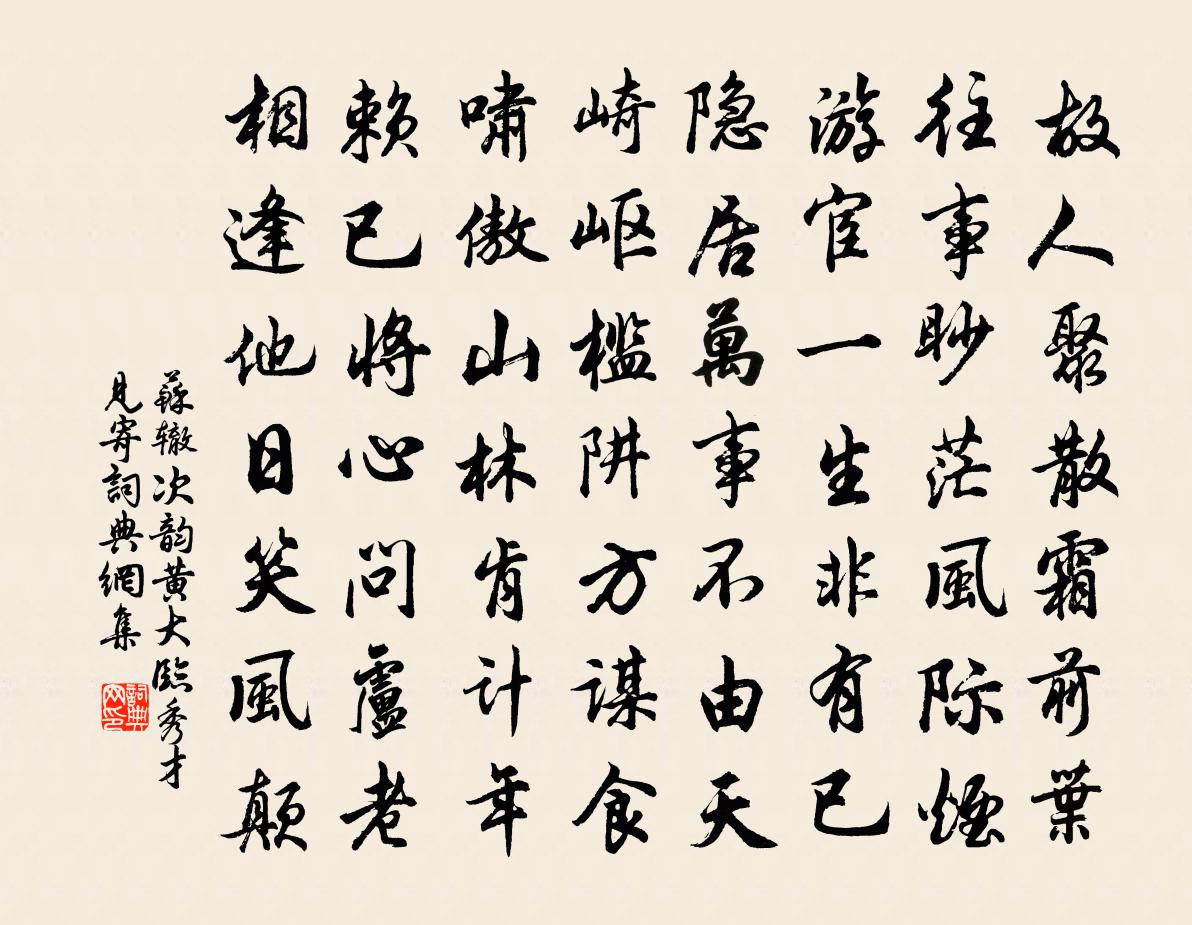 故人聚散霜前葉
往事眇茫風际煙
游宦一生非有已
隐居萬事不由天
崎岖檻阱方谋食
嘯傲山林肯计年
赖已将心问盧老
相逢他日笑風颠
蘇辙次韵黄大臨秀才
見寄詞典網集
詞典网印